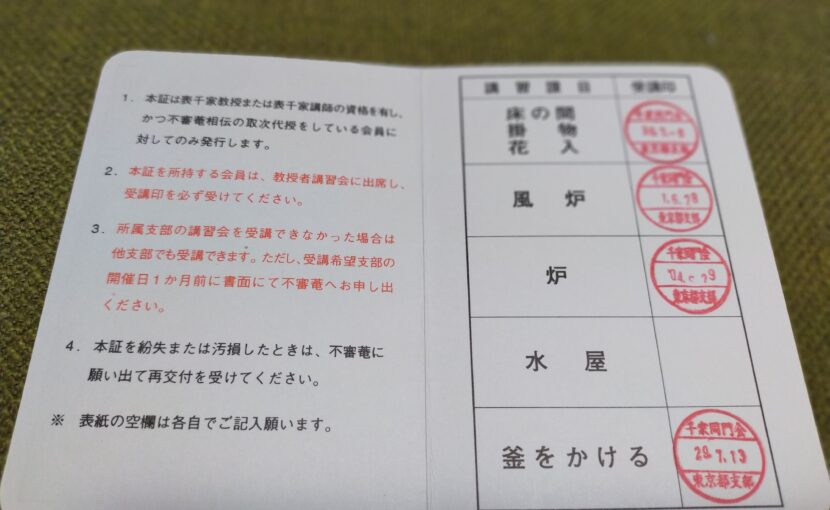 1. 本証は表千家教授または表千家講師の資格を有し、
かつ不審菴相伝の取次代授をしている会員に
対してのみ発行します。
2. 本証を所持する会員は、教授者講習会に出席し、
受講印を必ず受けてください。
3. 所属支部の講習会を受講できなかった場合は
他支部でも受講できます。ただし、受講希望支部の
開催日1か月前に書面にて不審菴へお申し出
ください。
4. 本証を紛失または汚損したときは、不審菴に
願い出て再交付を受けてください。
※ 表紙の空欄は各自でご記入願います。
講習課目 受講印
床の間
掛物
花入
千家同門会
東京都支部
風炉
千家同門会
1.6.28
東京都支部
炉
千家同門会
東京都支部
水屋
釜をかける
千家同門会
29.7.13
東京都支部